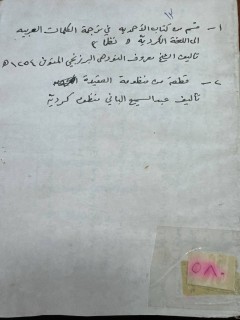 ١- قسم من كتاب الأحمدية في ترجمة الكلمات العربية
الى اللغة الكردية نظماً
تأليف الشيخ معروف النودهي البرزنجي المتوفى ١٢٥٤ هـ
٢- قطعة من منظومة العقيدة
تأليف عبد السميع الباني منظومة كردية
٥٨٠